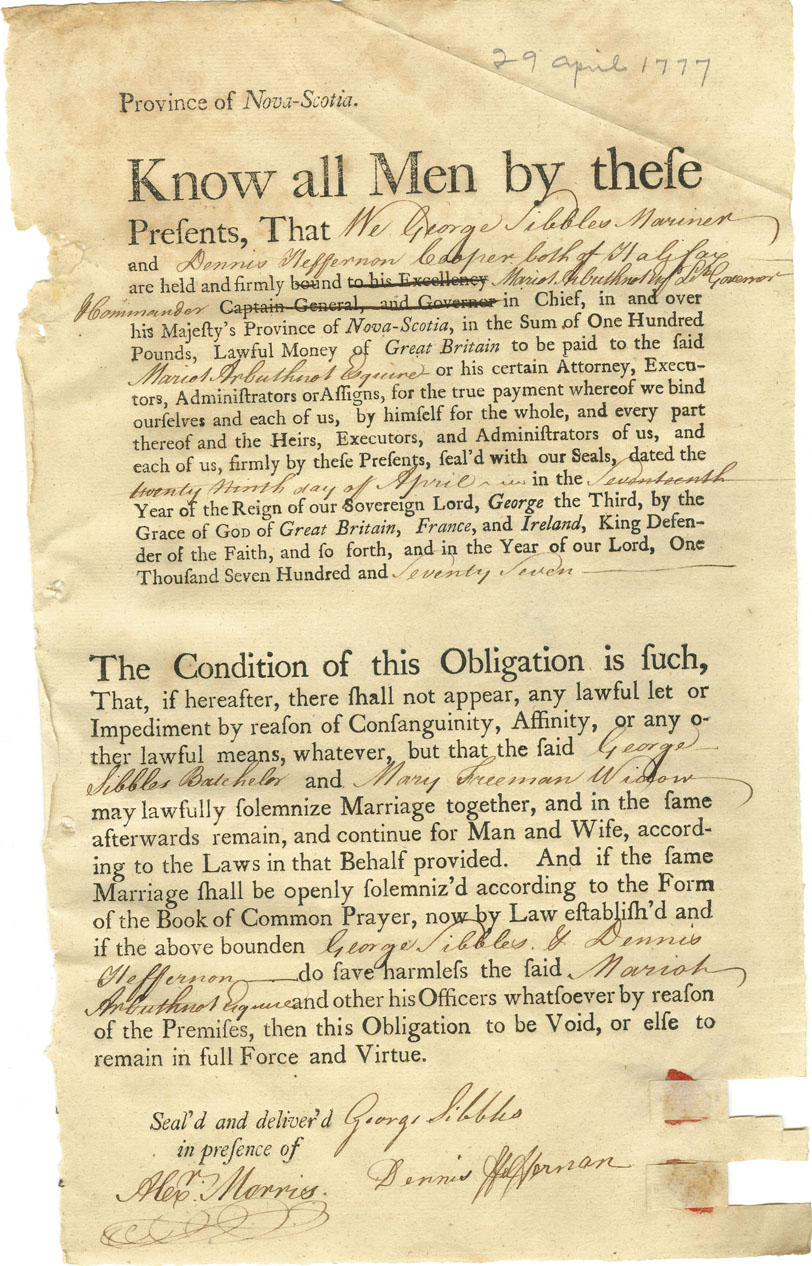 29 april 1777
Province of Nova-Scotia.
Know all Men by theſe
Preſents, That We George Sibbles Mariner
and Dennis Heffernon Cooper both of Halifax
are held and firmly bound to his Excellency Mariot Arbuthnot Esqr Lt. Governor
& Commander Captain-General, and Governor in Chief, in and over
his Majeſty's Province of Nova-Scotia, in the Sum of One Hundred
Pounds, Lawful Money of Great Britain to be paid to the ſaid
Mariot Arbuthnot Esquire or his certain Attorney, Execu-
tors, Adminiſtrators or Aſſigns, for the true payment whereof we bind
ourſelves and each of us, by himſelf for the whole, and every part
thereof and the Heirs, Executors, and Adminiſtrators of us, and
each of us, firmly by theſe Preſents, ſeal'd with our Seals, dated the
twenty Ninth day of April in the Seventeenth
Year of the Reign of our Sovereign Lord, George the Third, by the
Grace of God of Great Britain, France, and Ireland, King Defen-
der of the Faith, and ſo forth, and in the Year of our Lord, One
Thouſand Seven Hundred and Seventy Seven
The Condition of this Obligation is ſuch,
That, if hereafter, there ſhall not appear, any lawful let or
Impediment by reaſon of Conſanguinity, Affinity, or any o-
ther lawful means, whatever, but that the ſaid George
Sibbles Batchelor and Mary Freeman Widow
may lawfully ſolemnize Marriage together, and in the ſame
afterwards remain, and continue for Man and Wife, accord-
ing to the Laws in that Behalf provided. And if the ſame
Marriage ſhall be openly ſolemniz'd according to the Form
of the Book of Common Prayer, now by Law eſtabliſh'd and
if the above bounden George Sibbles & Dennis
Heffernon do ſave harmleſs the ſaid Mariot
Arbuthnot Esquire and other his Officers whatſoever by reaſon
of the Premiſes, then this Obligation to be Void, or elſe to
remain in full Force and Virtue.
Seal'd and deliver'd George Sibbles
in preſence of
Alexr. Morris. Dennis Heffernan